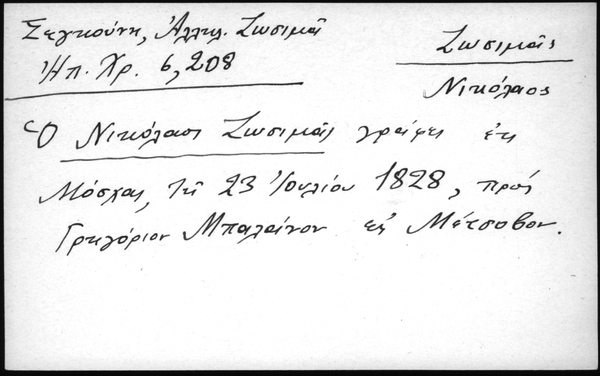 Σεγκούνη, Ἀλληλ. Ζωσιμᾶ
Ἠπ. Χρ. 6, 208
Ζωσιμᾶς
Νικόλαος
Ὁ Νικόλαος Ζωσιμᾶς γράφει ἐκ
Μόσχας, τῇ 23 Ἰουλίου 1828, πρὸς
Γρηγόριον Μπαλαίνον εἰς Μέτσοβον.